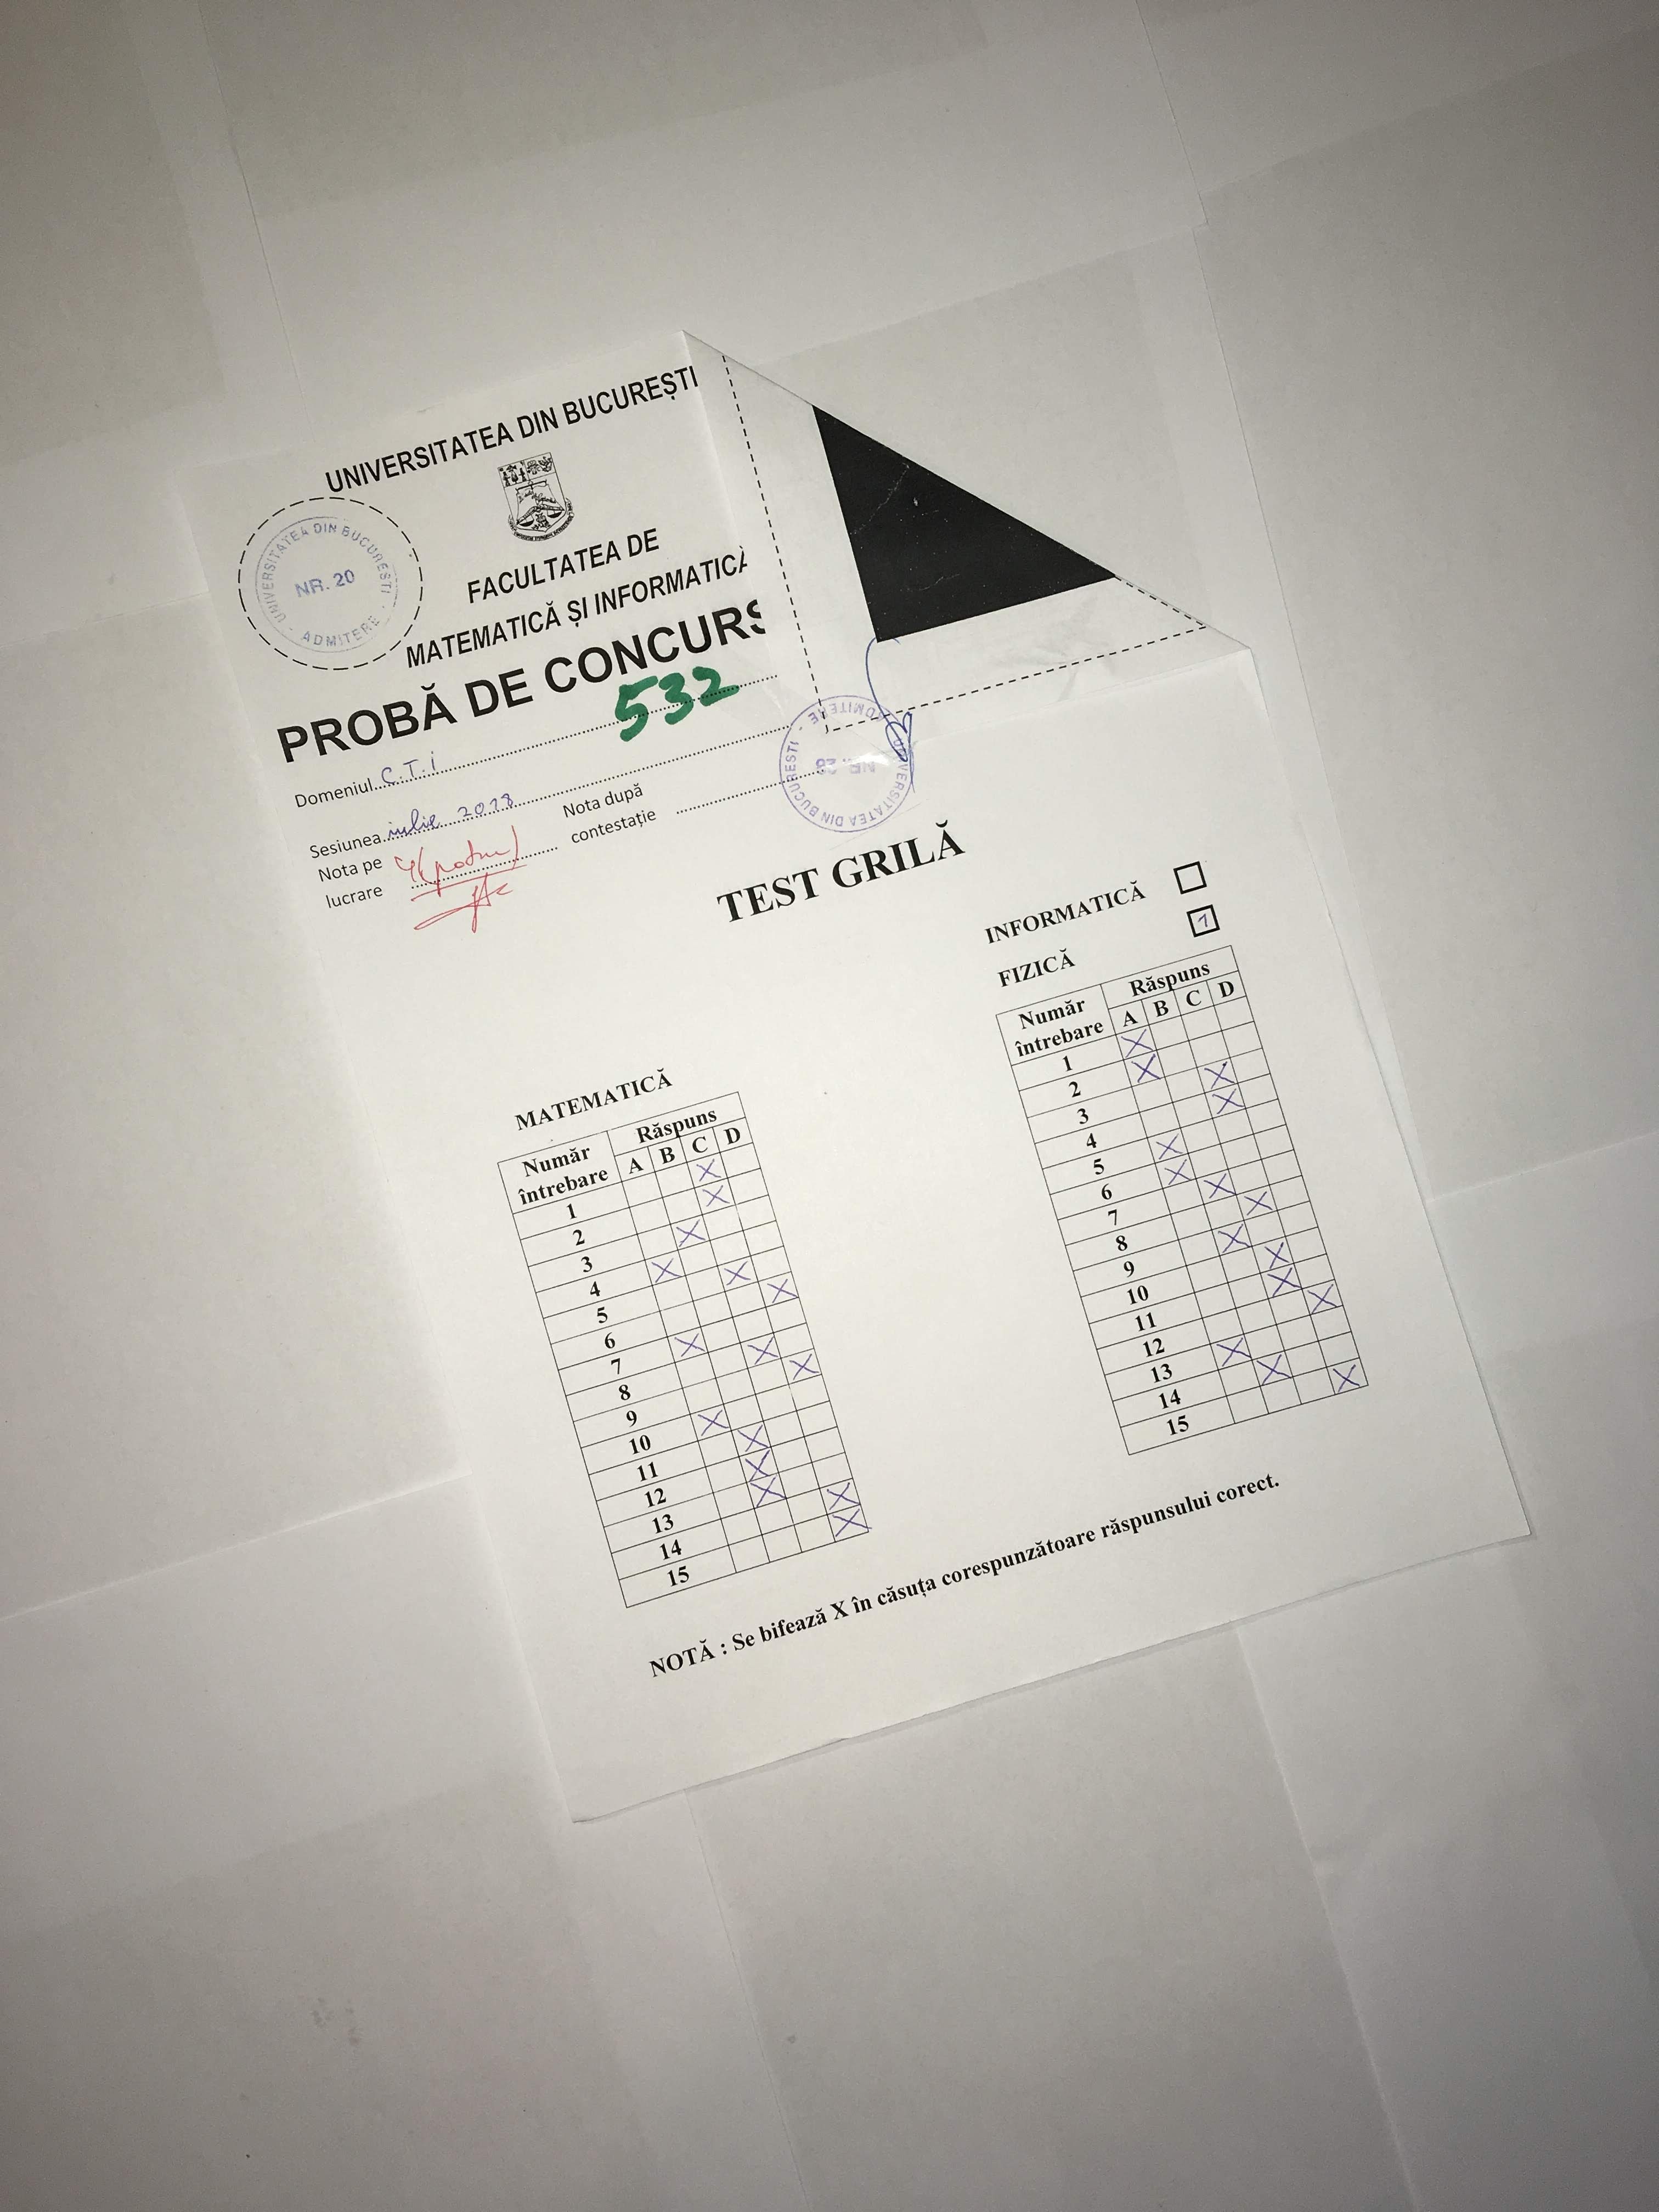 UNIVERSITATEA DIN BUCUREȘTI
UNIVERSITATEA DIN BUCUREȘTI - ADMITERE -
NR. 20
FACULTATEA DE
MATEMATICĂ ȘI INFORMATICĂ
PROBĂ DE CONCURS
532
Domeniul C.T.I
Sesiunea iulie 2018
Nota pe lucrare 4(patru)
Nota după contestație
UNIVERSITATEA DIN BUCURESTI - ADMITERE -
TEST GRILĂ
INFORMATICĂ
FIZICĂ 1
Număr întrebare Răspuns
A B C D
1 X
2 X
3 X
4 X
5 X
6 X
7 X
8 X
9 X
10 X
11 X
12 X
13 X
14 X
15 X
MATEMATICĂ
Număr întrebare Răspuns
A B C D
1 X
2 X
3 X
4 X
5 X
6 X
7 X
8 X
9 X
10 X
11 X
12 X
13 X
14 X
15 X
NOTĂ : Se bifează X în căsuța corespunzătoare răspunsului corect.